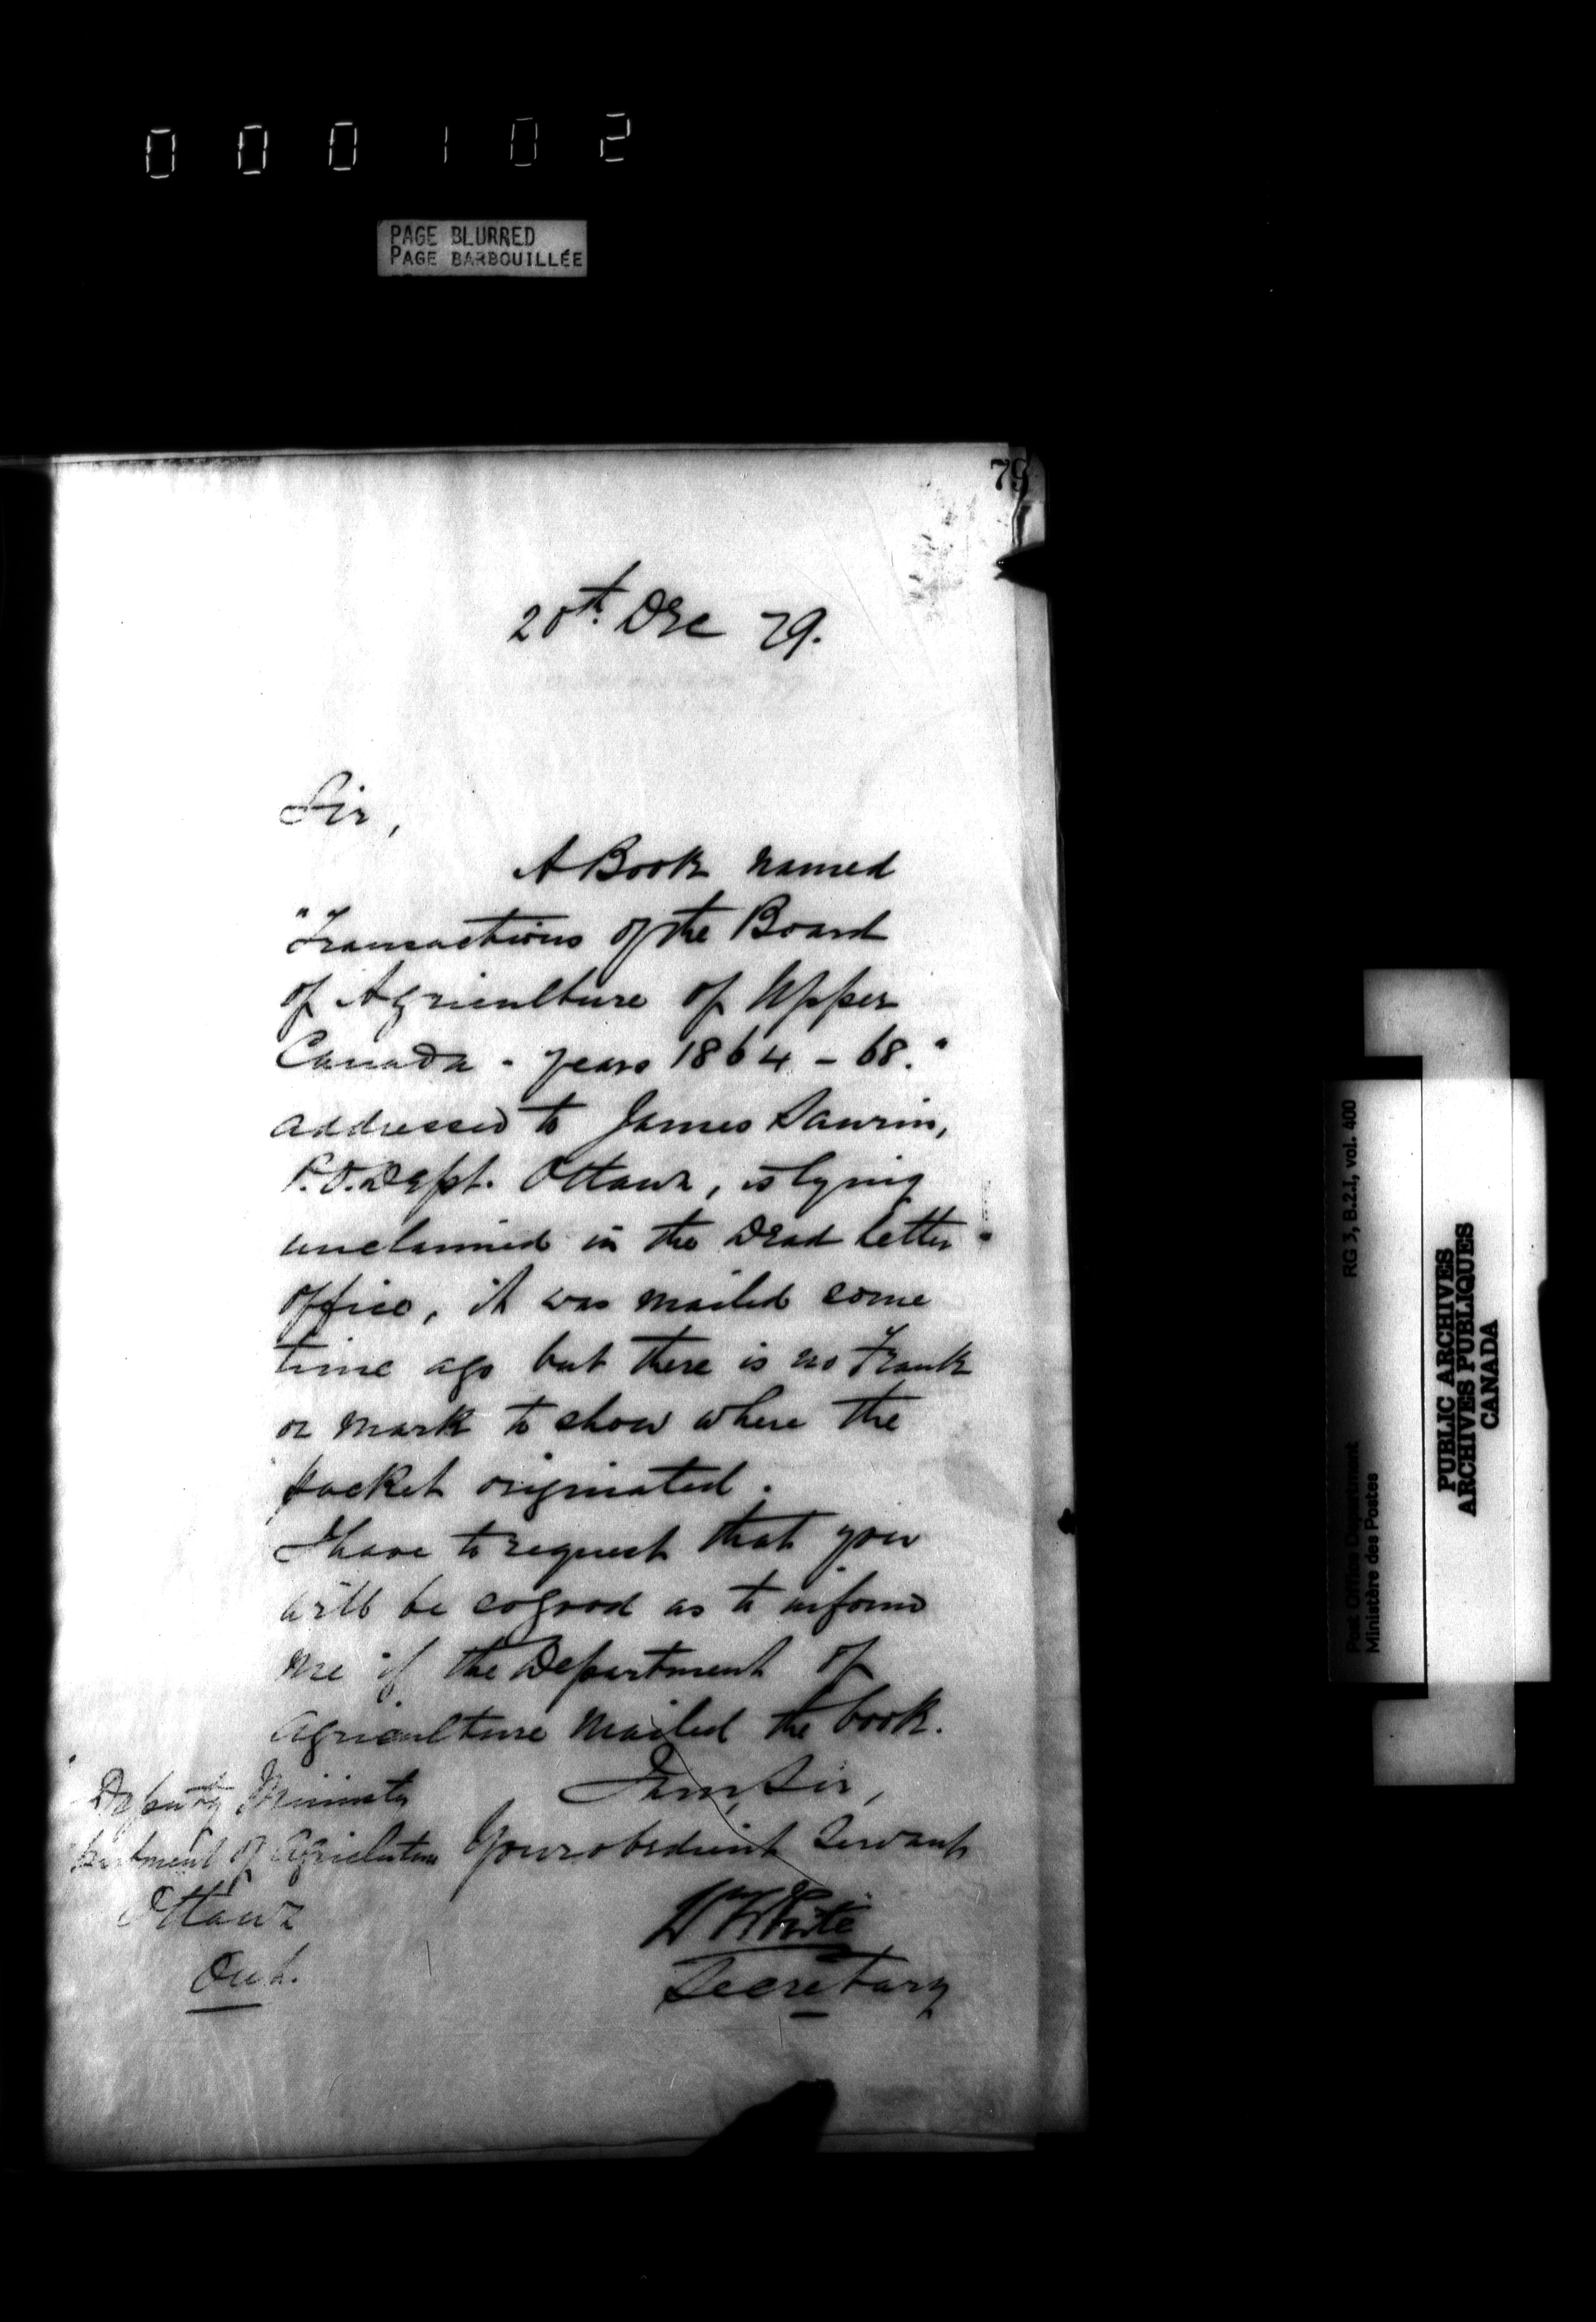 000102
PAGE BLURRED
PAGE BARBOUILLÉE
79
20th. Dec 79.
Sir,
A Book named
"Transactions of the Board
of Agriculture of Upper
Canada - years 1864 - 68."
addressed to James Saurin,
P.O. Dept. Ottawa, is lying
unclaimed in the Dead Letter
office, it was mailed some
time ago but there is no Frank
or mark to show where the
packet originated.
I have to request that you
will be so good as to inform
me if the Department of
Agriculture mailed the book.
I am, Sir,
Your obedient Servant
Deputy Minister
partment of Agriculture
Ottawa
Ont.
W White
Secretary
RG 3, B.2.I, vol. 400
Post Office Department
Ministère des Postes
PUBLIC ARCHIVES
ARCHIVES PUBLIQUES
CANADA